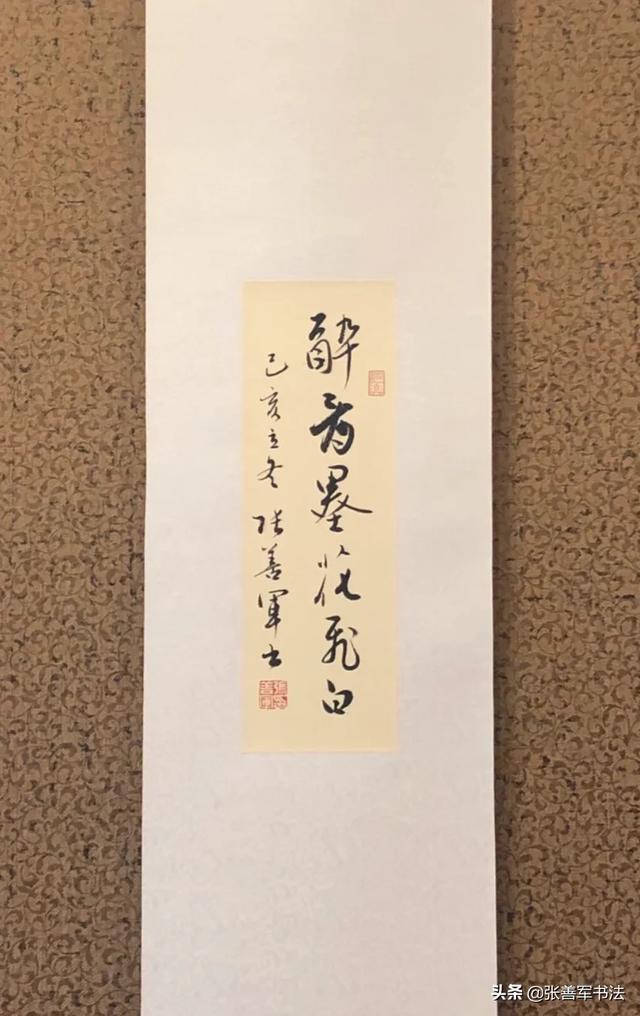 醉看墨花飛白
己亥立冬 张善軍书
头条 @张善军书法